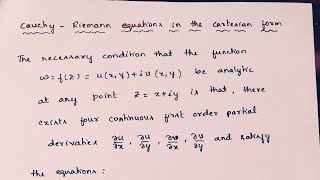 Cauchy - Riemann equations in the cartesian form
The necessary condition that the function
w=f(z) = u(x,y)+iv(x,y) be analytic
at any point z=x+iy is that, there
exists four continuous first order partial
derivaties ∂u/∂x, ∂u/∂y, ∂v/∂x, ∂v/∂y and satisfy
the equations: